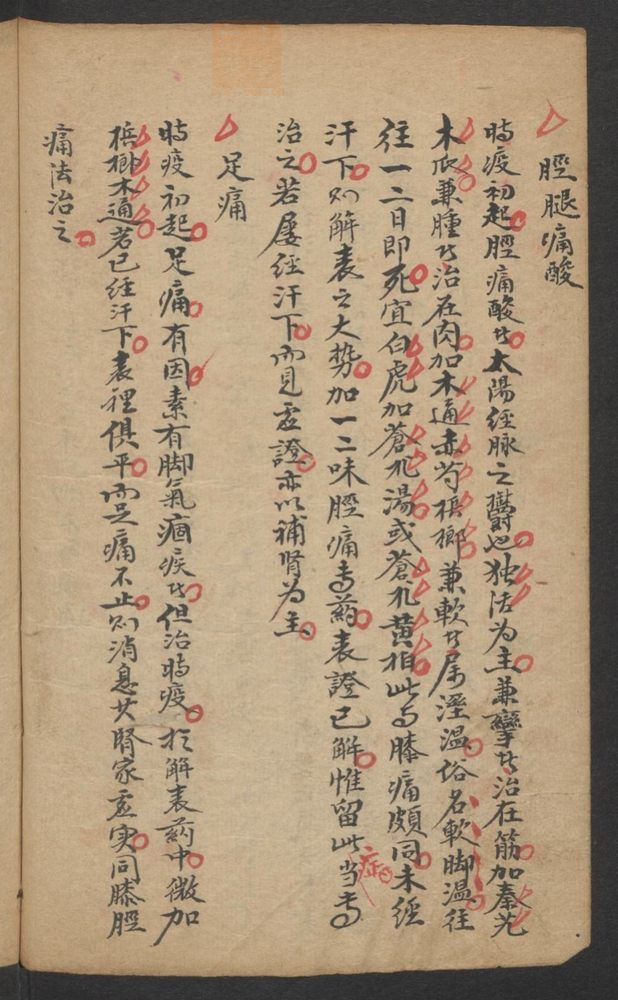 脛腿痛酸
時疫初起脛痛酸者太陽經脉之鬱也独活为主兼攣者治在筋加秦艽
木瓜兼腫者治在肉加木通赤芍槟榔兼軟者属溼温俗名軟脚温往
往一二日即死宜白虎加蒼朮湯或蒼朮黄柏此与膝痛頗同未經
汗下则解表之大势加一二味脛痛专药表證已解惟留此症当专
治之若屡經汗下而見虚證亦以補腎为主
足痛
時疫初起足痛有因素有脚氣痼疾者但治時疫於解表药中微加
槟榔木通若已经汗下表裡俱平而足痛不止则消息其腎家虚实同膝脛
痛法治之